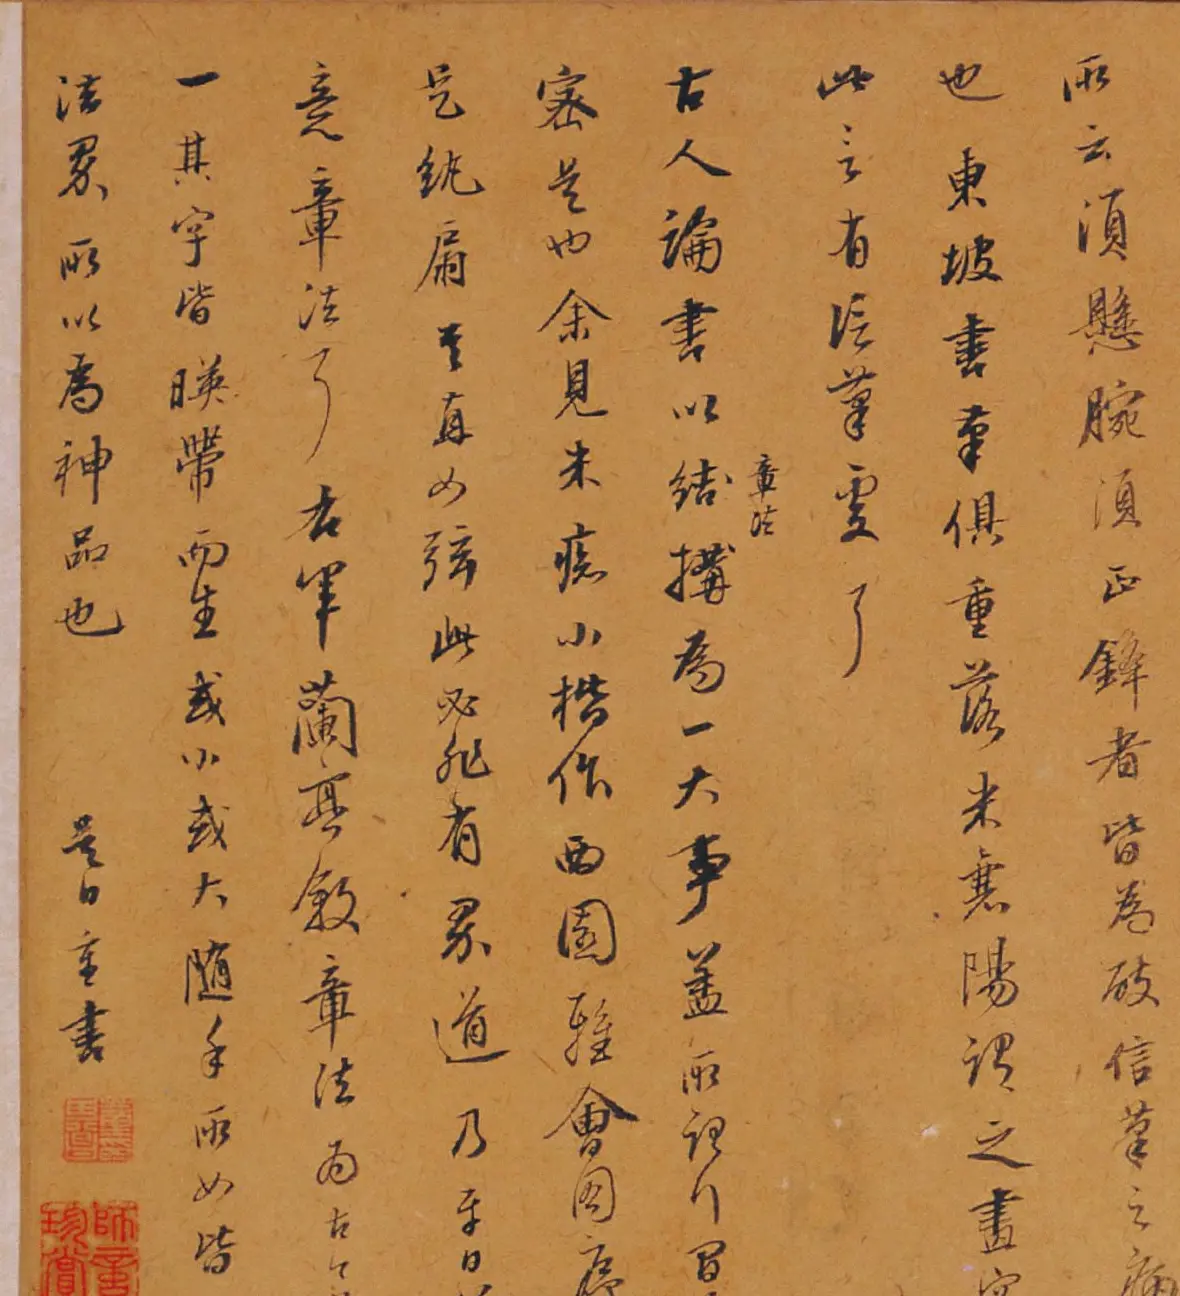 所云須懸腕須正鋒者皆為破信筆之病
也東坡書筆俱重落米襄陽謂之畫字
此言有信筆處了
古人論書以章法
結構為一大事蓋所謂行間
密是也余見米痴小楷作西園雅會圖序
是紈扇其直如弦此必非有異道乃平日
意章法了右軍蘭亭敘章法為古今
一其字皆暎帶而生或小或大隨手所如皆
法界所以為神品也 是日重書
師
珍賞